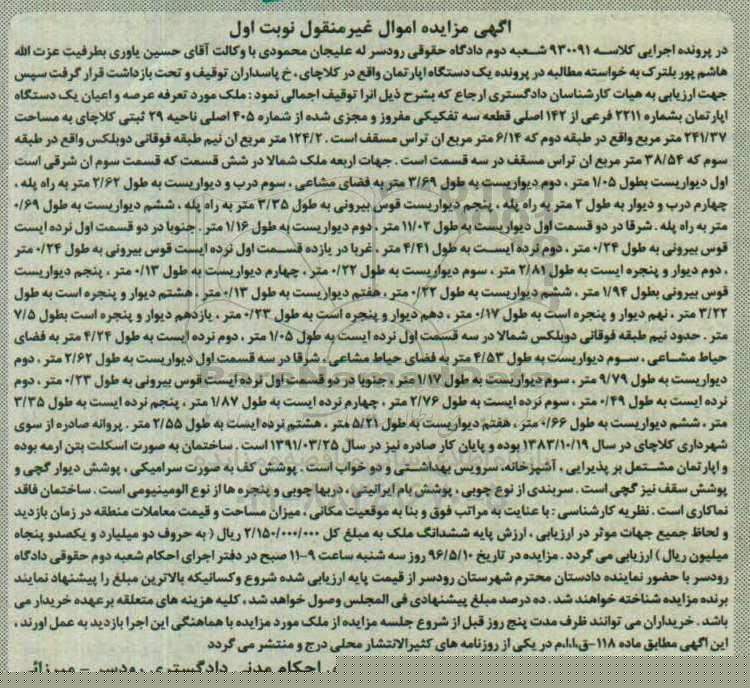 آگهی مزایده اموال غیرمنقول نوبت اول
در پرونده اجرایی کلاسه ۹۳۰۰۹۱ شعبه دوم دادگاه حقوقی رودسر له علیجان محمودی با وکالت آقای حسین یاوری بطرفیت عزت الله
هاشم پور بلترک به خواسته مطالبه در پرونده یک دستگاه آپارتمان واقع در کلاچای، خ پاسداران توقیف و تحت بازداشت قرار گرفت سپس
جهت ارزیابی به هیات کارشناسان دادگستری ارجاع که بشرح ذیل انرا توقیف اجمالی نمود : ملک مورد تعرفه عرصه و اعیان یک دستگاه
اپارتمان بشماره ۲۲۱۱ فرعی از ۱۴۲ اصلی قطعه سه تفکیکی مفروز و مجزی شده از شماره ۴۰۵ اصلی ناحیه ۲۹ ثبتی کلاچای به مساحت
۲۴۱/۳۷ متر مربع واقع در طبقه دوم که ۶/۱۴ متر مربع ان تراس مسقف است . ۱۲۴/۲ متر مربع ان نیم طبقه فوقانی دوبلکس واقع در طبقه
سوم که ۳۸/۵۴ متر مربع ان تراس مسقف در سه قسمت است . جهات اربعه ملک شمالا در شش قسمت که قسمت سوم ان شرقی است
اول دیواریست بطول ۱/۰۵ متر ، دوم دیواریست به طول ۳/۶۹ متر به فضای مشاعی ، سوم درب و دیواریست به طول ۲/۶۲ متر به راه پله ،
چهارم درب و دیوار به طول ۲ متر به راه پله ، پنجم دیواریست قوس بیرونی به طول ۳/۳۵ متر به راه پله ، ششم دیواریست به طول ۰/۶۹
متر به راه پله . شرقا در دو قسمت اول دیواریست به طول ۱۱/۰۲ متر ، دوم دیواریست به طول ۱/۱۶ متر . جنوبا در دو قسمت اول نرده ایست
قوس بیرونی به طول ۰/۲۴ متر ، دوم نرده ایست به طول ۴/۴۱ متر ، غربا در یازده قسمت اول نرده ایست قوس بیرونی به طول ۰/۲۴ متر
، دوم دیوار و پنجره ایست به طول ۲/۸۱ متر ، سوم دیواریست به طول ۰/۲۲ متر ، چهارم دیواریست به طول ۰/۱۳ متر ، پنجم دیواریست
قوس بیرونی بطول ۱/۹۴ متر ، ششم دیواریست به طول ۰/۲۲ متر ، هفتم دیواریست به طول ۰/۱۳ متر ، هشتم دیوار و پنجره است به طول
۳/۲۲ متر ، نهم دیوار و پنجره است به طول ۰/۱۷ متر ، دهم دیوار و پنجره است به طول ۰/۲۳ متر ، یازدهم دیوار و پنجره است بطول ۷/۵
متر . حدود نیم طبقه فوقانی دوبلکس شمالا در سه قسمت اول نرده ایست به طول ۱/۰۵ متر ، دوم نرده ایست به طول ۴/۲۴ متر به فضای
حیاط مشاعی ، سوم دیواریست به طول ۴/۵۳ متر به فضای حیاط مشاعی . شرقا در سه قسمت اول دیواریست به طول ۲/۶۲ متر ، دوم
دیواریست به طول ۹/۷۹ متر ، سوم دیواریست به طول ۱/۱۷ متر ، جنوبا در دو قسمت اول نرده ایست قوس بیرونی به طول ۰/۲۳ متر ، دوم
نرده ایست به طول ۰/۴۹ متر ، سوم نرده ایست به طول ۲/۷۶ متر ، چهارم نرده ایست به طول ۱/۸۷ متر ، پنجم نرده ایست به طول ۳/۳۵
متر ، ششم دیواریست به طول ۰/۶۶ متر ، هفتم دیواریست به طول ۵/۲۱ متر ، هشتم نرده ایست به طول ۲/۵۵ متر . پروانه صادره از سوی
شهرداری کلاچای در سال ۱۳۸۳/۱۰/۱۹ بوده و پایان کار صادره نیز در سال ۱۳۹۱/۰۳/۲۵ است . ساختمان به صورت اسکلت بتن ارمه بوده
و اپارتمان مشتمل بر پذیرایی ، آشپزخانه، سرویس بهداشتی و دو خواب است . پوشش کف به صورت سرامیکی ، پوشش دیوار گچی و
پوشش سقف نیز گچی است . سربندی از نوع چوبی ، پوشش بام ایرانیتی ، دربها چوبی و پنجره ها از نوع الومینیومی است . ساختمان فاقد
نماکاری است . نظریه کارشناسی : با عنایت به مراتب فوق و بنا به موقعیت مکانی ، میزان مساحت و قیمت معاملات منطقه در زمان بازدید
و لحاظ جمیع جهات موثر در ارزیابی ، ارزش پایه ششدانگ ملک به مبلغ کل ۲/۱۵۰/۰۰۰/۰۰۰ ریال ( به حروف دو میلیارد و یکصدو پنجاه
میلیون ریال ) ارزیابی می گردد . مزایده در تاریخ ۹۶/۵/۱۰ روز سه شنبه ساعت ۹-۱۱ صبح در دفتر اجرای احکام شعبه دوم حقوقی دادگاه
رودسر با حضور نماینده دادستان محترم شهرستان رودسر از قیمت پایه ارزیابی شده شروع و کسانیکه بالاترین مبلغ را پیشنهاد نمایند
برنده مزایده شناخته خواهند شد . ده درصد مبلغ پیشنهادی فی المجلس وصول خواهد شد ، کلیه هزینه های متعلقه بر عهده خریدار می
باشد . خریداران می توانند ظرف مدت پنج روز قبل از شروع جلسه مزایده از ملک مورد مزایده با هماهنگی این اجرا بازدید به عمل اورند ،
این آگهی مطابق ماده ۱۱۸-ق.ا.ا.م در یکی از روزنامه های کثیرالانتشار محلی درج و منتشر می گردد
احکام مدنی دادگستری رودسر – میرزائی